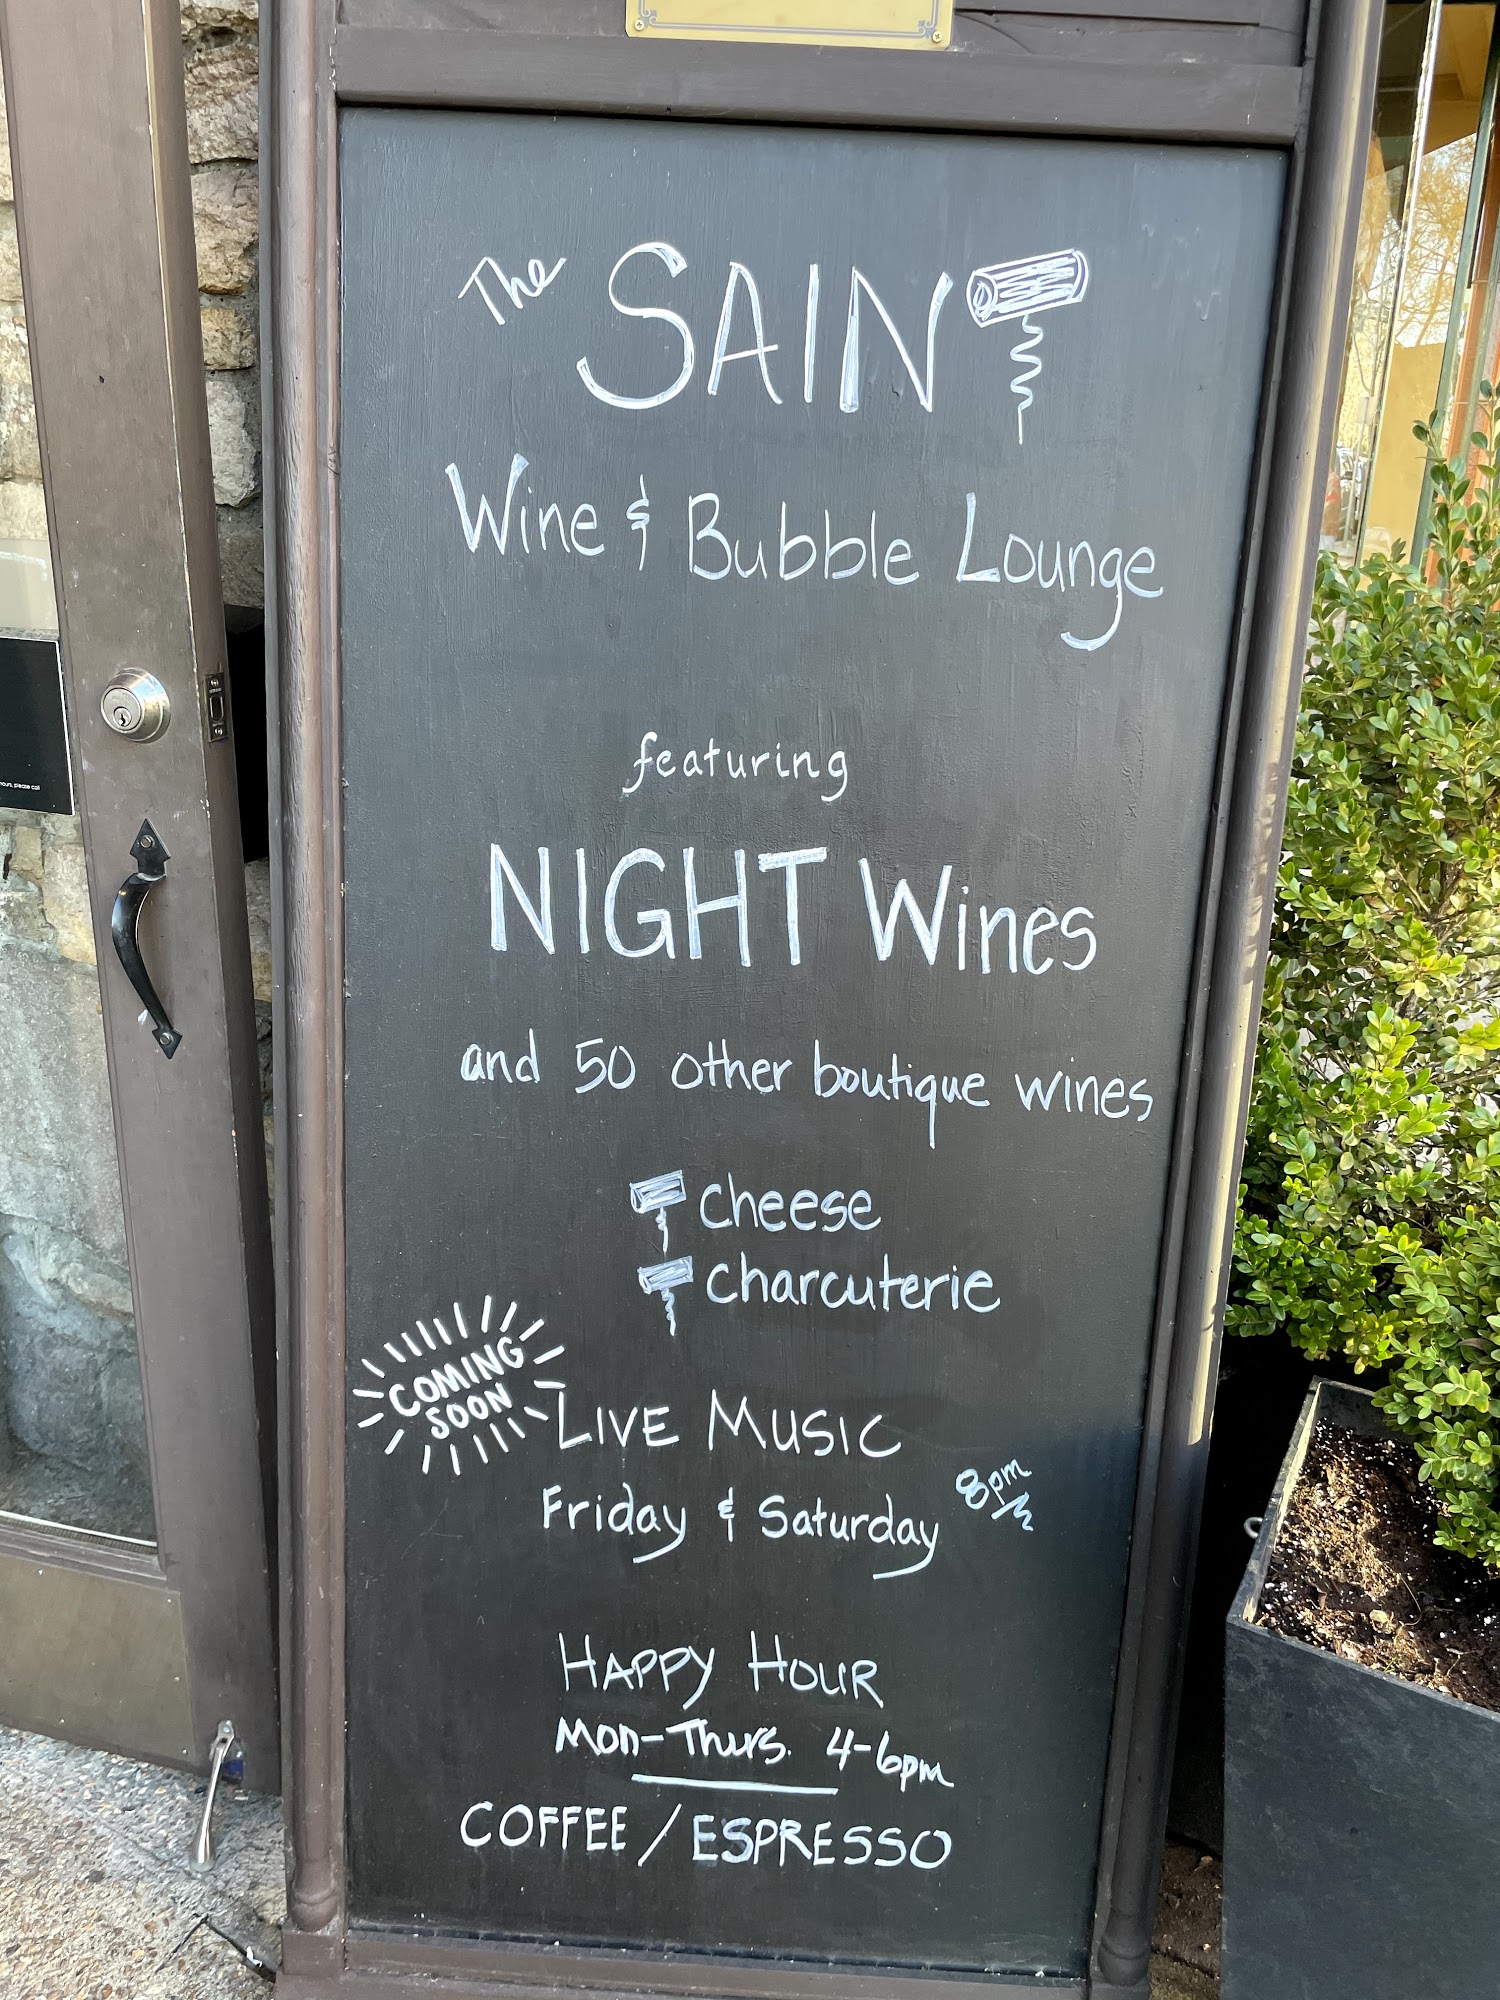 The SAINT
Wine & Bubble Lounge
featuring
NIGHT Wines
and 50 other boutique wines
cheese
charcuterie
COMING
SOON
LIVE MUSIC
Friday & Saturday 8pm
HAPPY HOUR
Mon-Thurs. 4-6pm
COFFEE / ESPRESSO
hours, please call